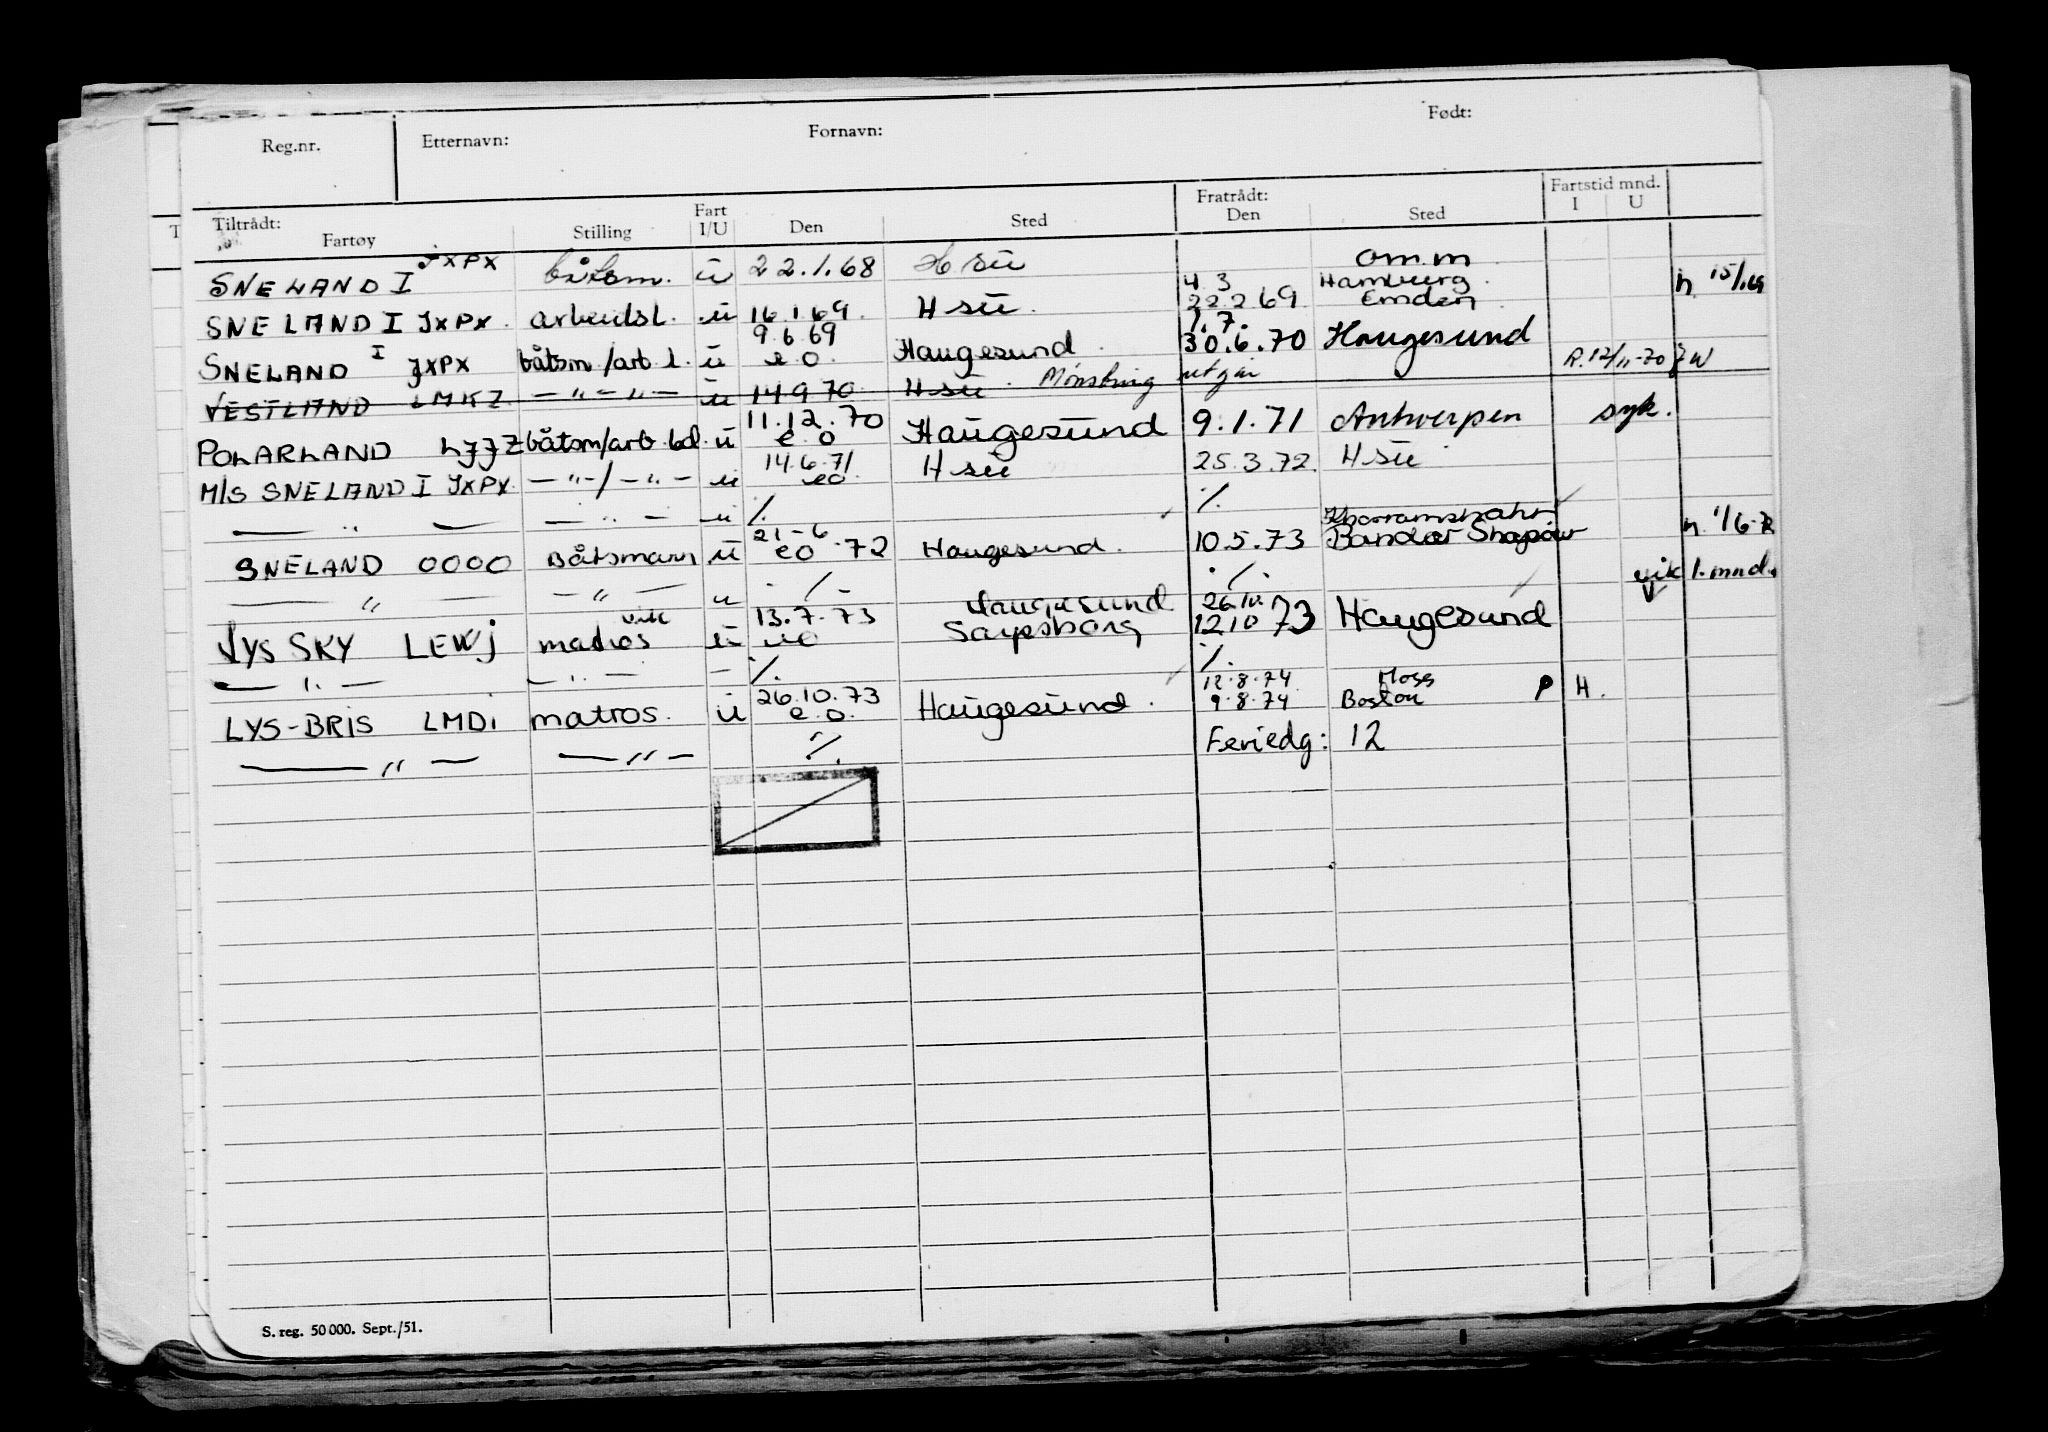 Reg.nr. Etternavn: Fornavn: Født:
Tiltrådt: Fratrådt: Fartstid mnd.
Fartøy Stilling Fart I/U Den Sted Den Sted I U
SNELAND I JXPX båtsm. ü 22.1.68 Hsü omm
4.3 Hamburg.
SNELAND I JXPX. arbeidsl. ü 16.1.69. Hsü. 22.2.69. Emden. n. 15/1.69
9.6.69 1.7.
SNELAND I JXPX båtsm/arb.l. ü e.o. Haugesund. 30.6.70 Haugesund
VESTLAND LMKZ. -"-"- ü 14.9.70. Hsü. Mønstring utgår R.12/11-70
11.12.70
POLARLAND LJJZ båtsm/arb.ld. ü e.o Haugesund 9.1.71 Antwerpen syk.
14.6.71
M/S SNELAND I JXPX. -"-/-"- ü eo. Hsü 25.3.72. Hsü
— " — — " — ü ./. ./.
21-6 Khorramshahr
SNELAND OOOO Båtsmann ü eo.72 Haugesund. 10.5.73 Bandar Shapour n. 1/6-72
— " — — " — u ./. ./. vik 1. mnd.
vik 13.7.73 Haugesund 26.10.
LYS SKY LEWJ matros ü eo Sarpsborg 12.10.73 Haugesund
— ". — — ". — - ./. ./.
26.10.73 12.8.74 Moss
LYS-BRIS LMDI matros. ü e.o. Haugesund. 9.8.74 Boston P H.
— " — — " — ./. Feriedg: 12
S. reg. 50 000. Sept./51.